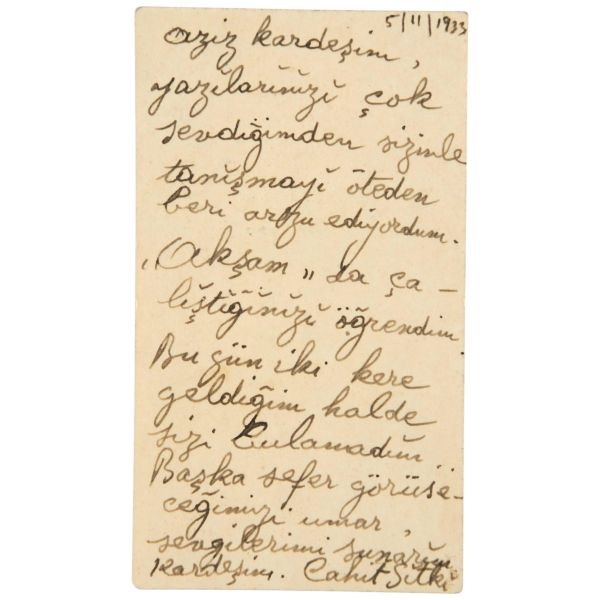 5/11/1933
aziz kardeşim,
yazılarınızı çok
sevdiğimden sizinle
tanışmayı öteden
beri arzu ediyordum.
„Akşam„ da ça-
lıştığınızı öğrendim
Bu gün iki kere
geldiğim halde
sizi bulamadım
Başka sefer görüşe-
ceğimizi umar,
sevgilerimi sunarım
kardeşim. Cahit Sıtkı